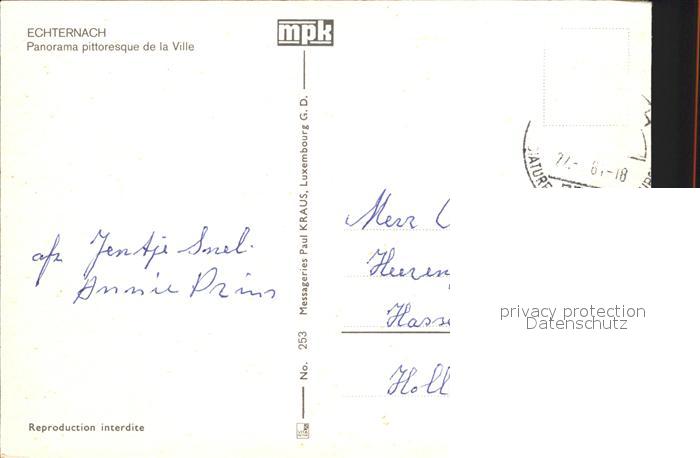 ECHTERNACH
Panorama pittoresque de la Ville
mpk
No. 253 Messageries Paul KRAUS, Luxembourg G. D.
afz Jentje Snel.
Annie Prins
Heeren
Hasse
Holl
privacy protection
Datenschutz
Reproduction interdite